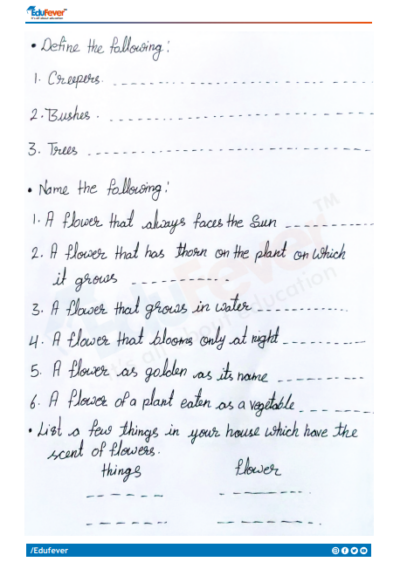 EduFever
• Define the following:
1. Creepers. ------------
2. Bushes. ------------
3. Trees ------------
• Name the following:
1. A flower that always faces the sun ---------
2. A flower that has thorn on the plant on which
it grows ----------
3. A flower that grows in water ----------
4. A flower that blooms only at night ---------
5. A flower as golden as its name ---------
6. A flower of a plant eaten as a vegetable ------
• List a few things in your house which have the
scent of flowers.
things flower
------ -------
------ -------
/Edufever